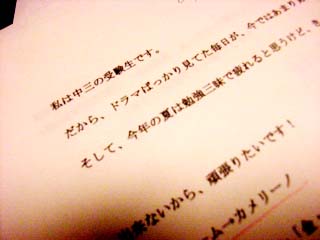 私は中三の受験生です。
だから、ドラマばっかり見てた毎日が、今ではあまり
そして、今年の夏は勉強三昧で疲れると思うけど、き
来ないから、頑張りたいです！
ーム→カメリーノ
「金